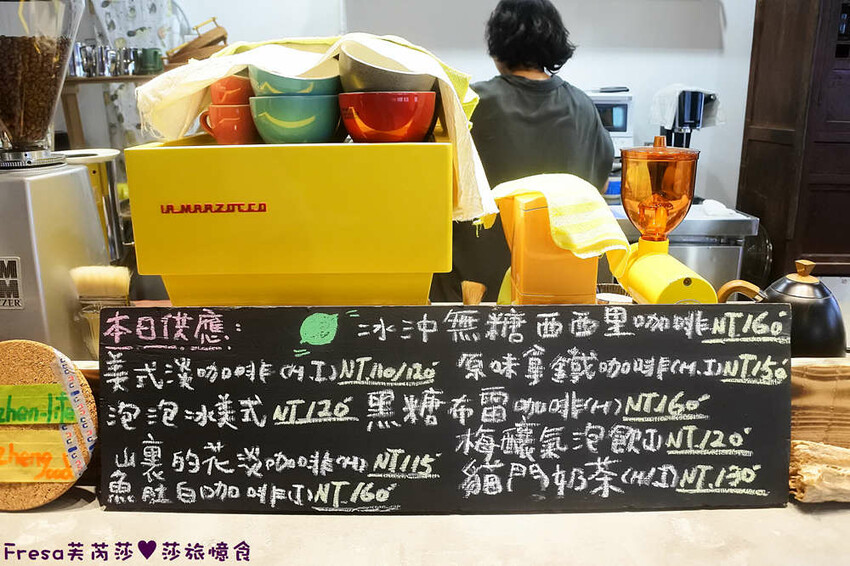 LA MARZOCCO
本日供應:
冰沖無糖西西里咖啡NT.160
美式淡咖啡(H.I)NT.110/120
原味拿鐵咖啡(H.I)NT.150
泡泡冰美式NT.120
黑糖布雷咖啡(H)NT.160
山裏的花淡咖啡(H)NT.115
梅釀氣泡飲(I)NT.120
魚肚白咖啡(I)NT.160
貓門奶茶(H/I)NT.130
Fresa芙芮莎♥莎旅憶食